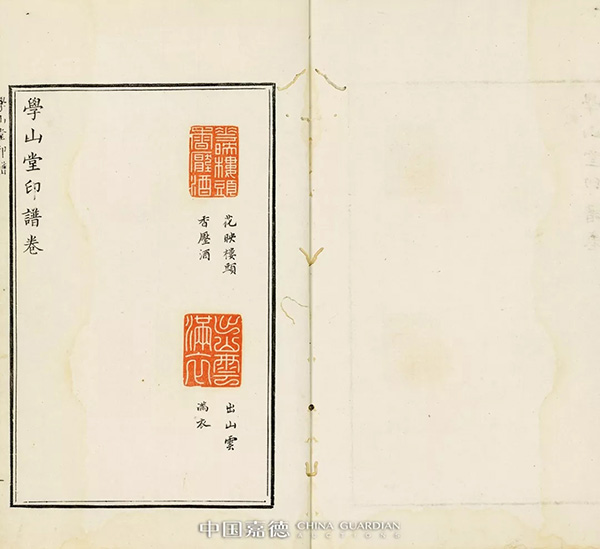 花映樓頭
香壓酒
出山雲
滿衣
出山雲
滿衣
學山堂印譜卷
學山堂印譜
中国嘉德 CHINA GUARDIAN
AUCTIONS